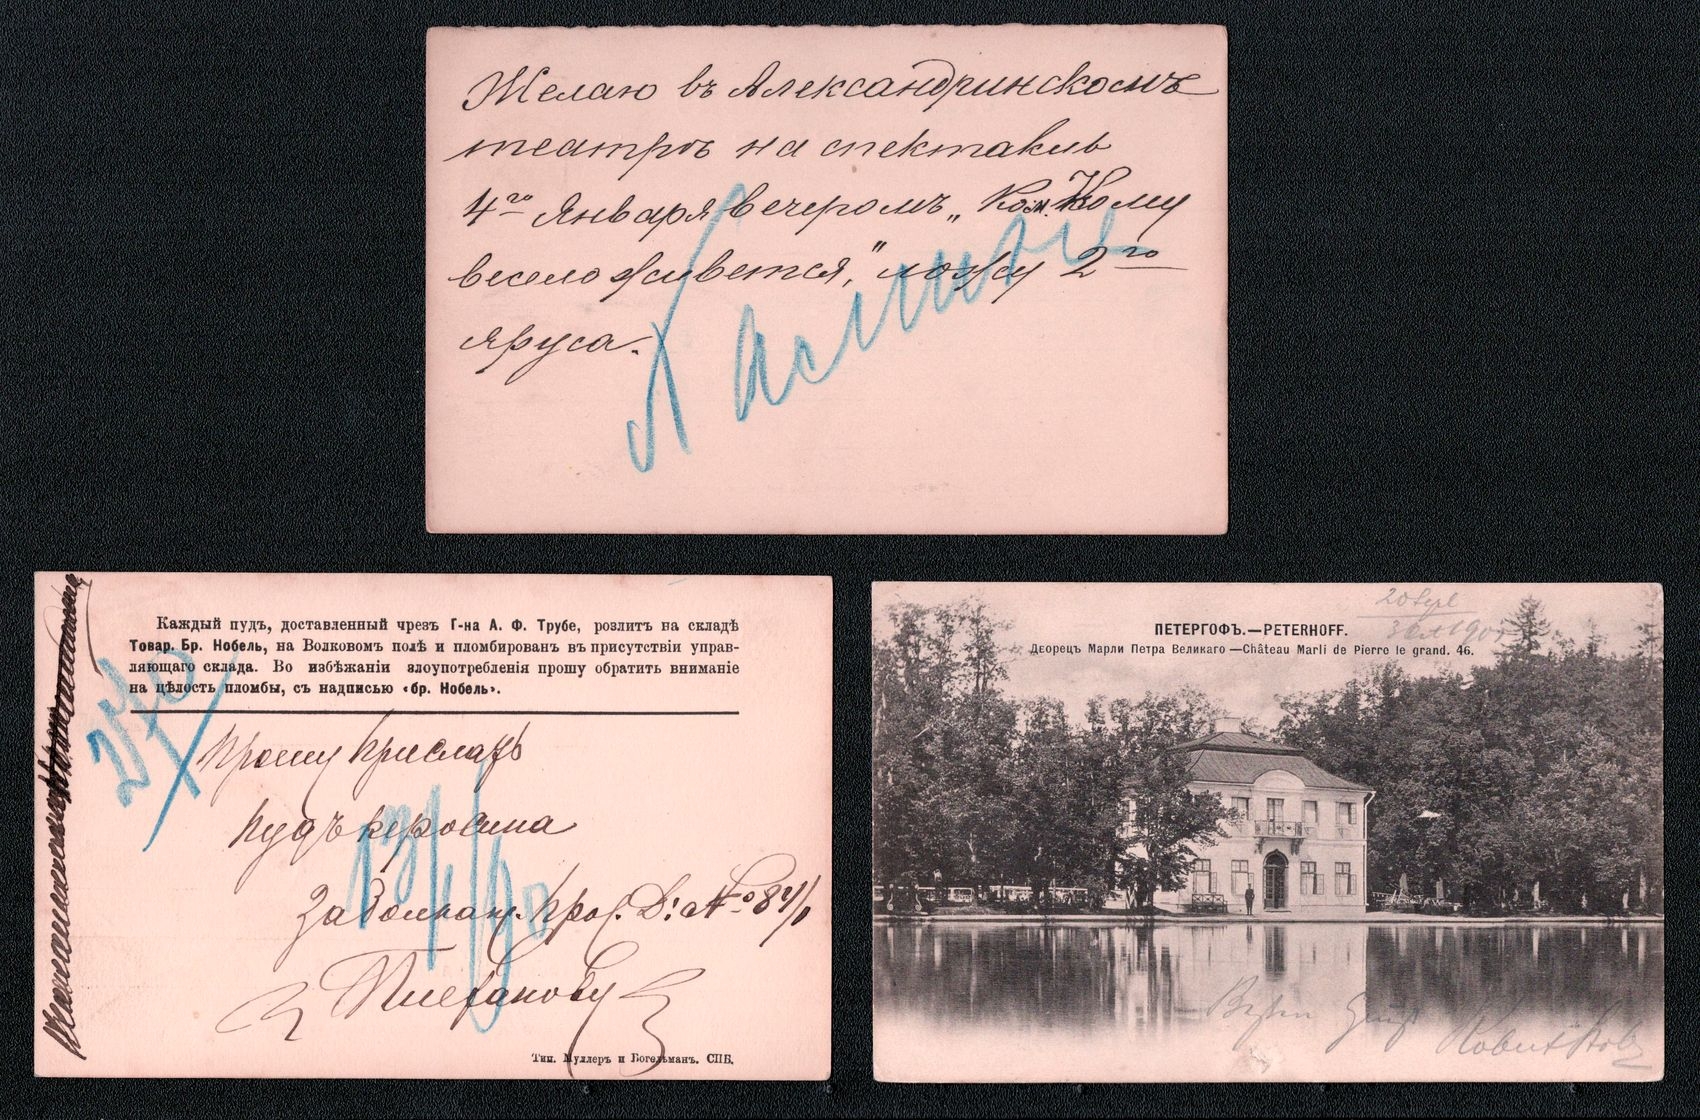 Желаю въ Александринскомъ
театрѣ на спектакль
4го Января вечеромъ „Ком. Кому
весело живется," ложу 2го
яруса.
Каждый пудъ, доставленный чрезъ Г-на А. Ф. Трубе, розлитъ на складѣ
Товар. Бр. Нобель, на Волковомъ полѣ и пломбированъ въ присутствіи управ-
ляющаго склада. Во избѣжаніи злоупотребленія прошу обратить вниманіе
на цѣлость пломбы, съ надписью «бр. Нобель».
Прошу прислать
пудъ керосина
Забалкан. прос. Д: № 84/1
Тип. Муллеръ и Богельманъ. СПБ.
ПЕТЕРГОФЪ.—PETERHOFF.
Дворецъ Марли Петра Великаго—Château Marli de Pierre le grand. 46.